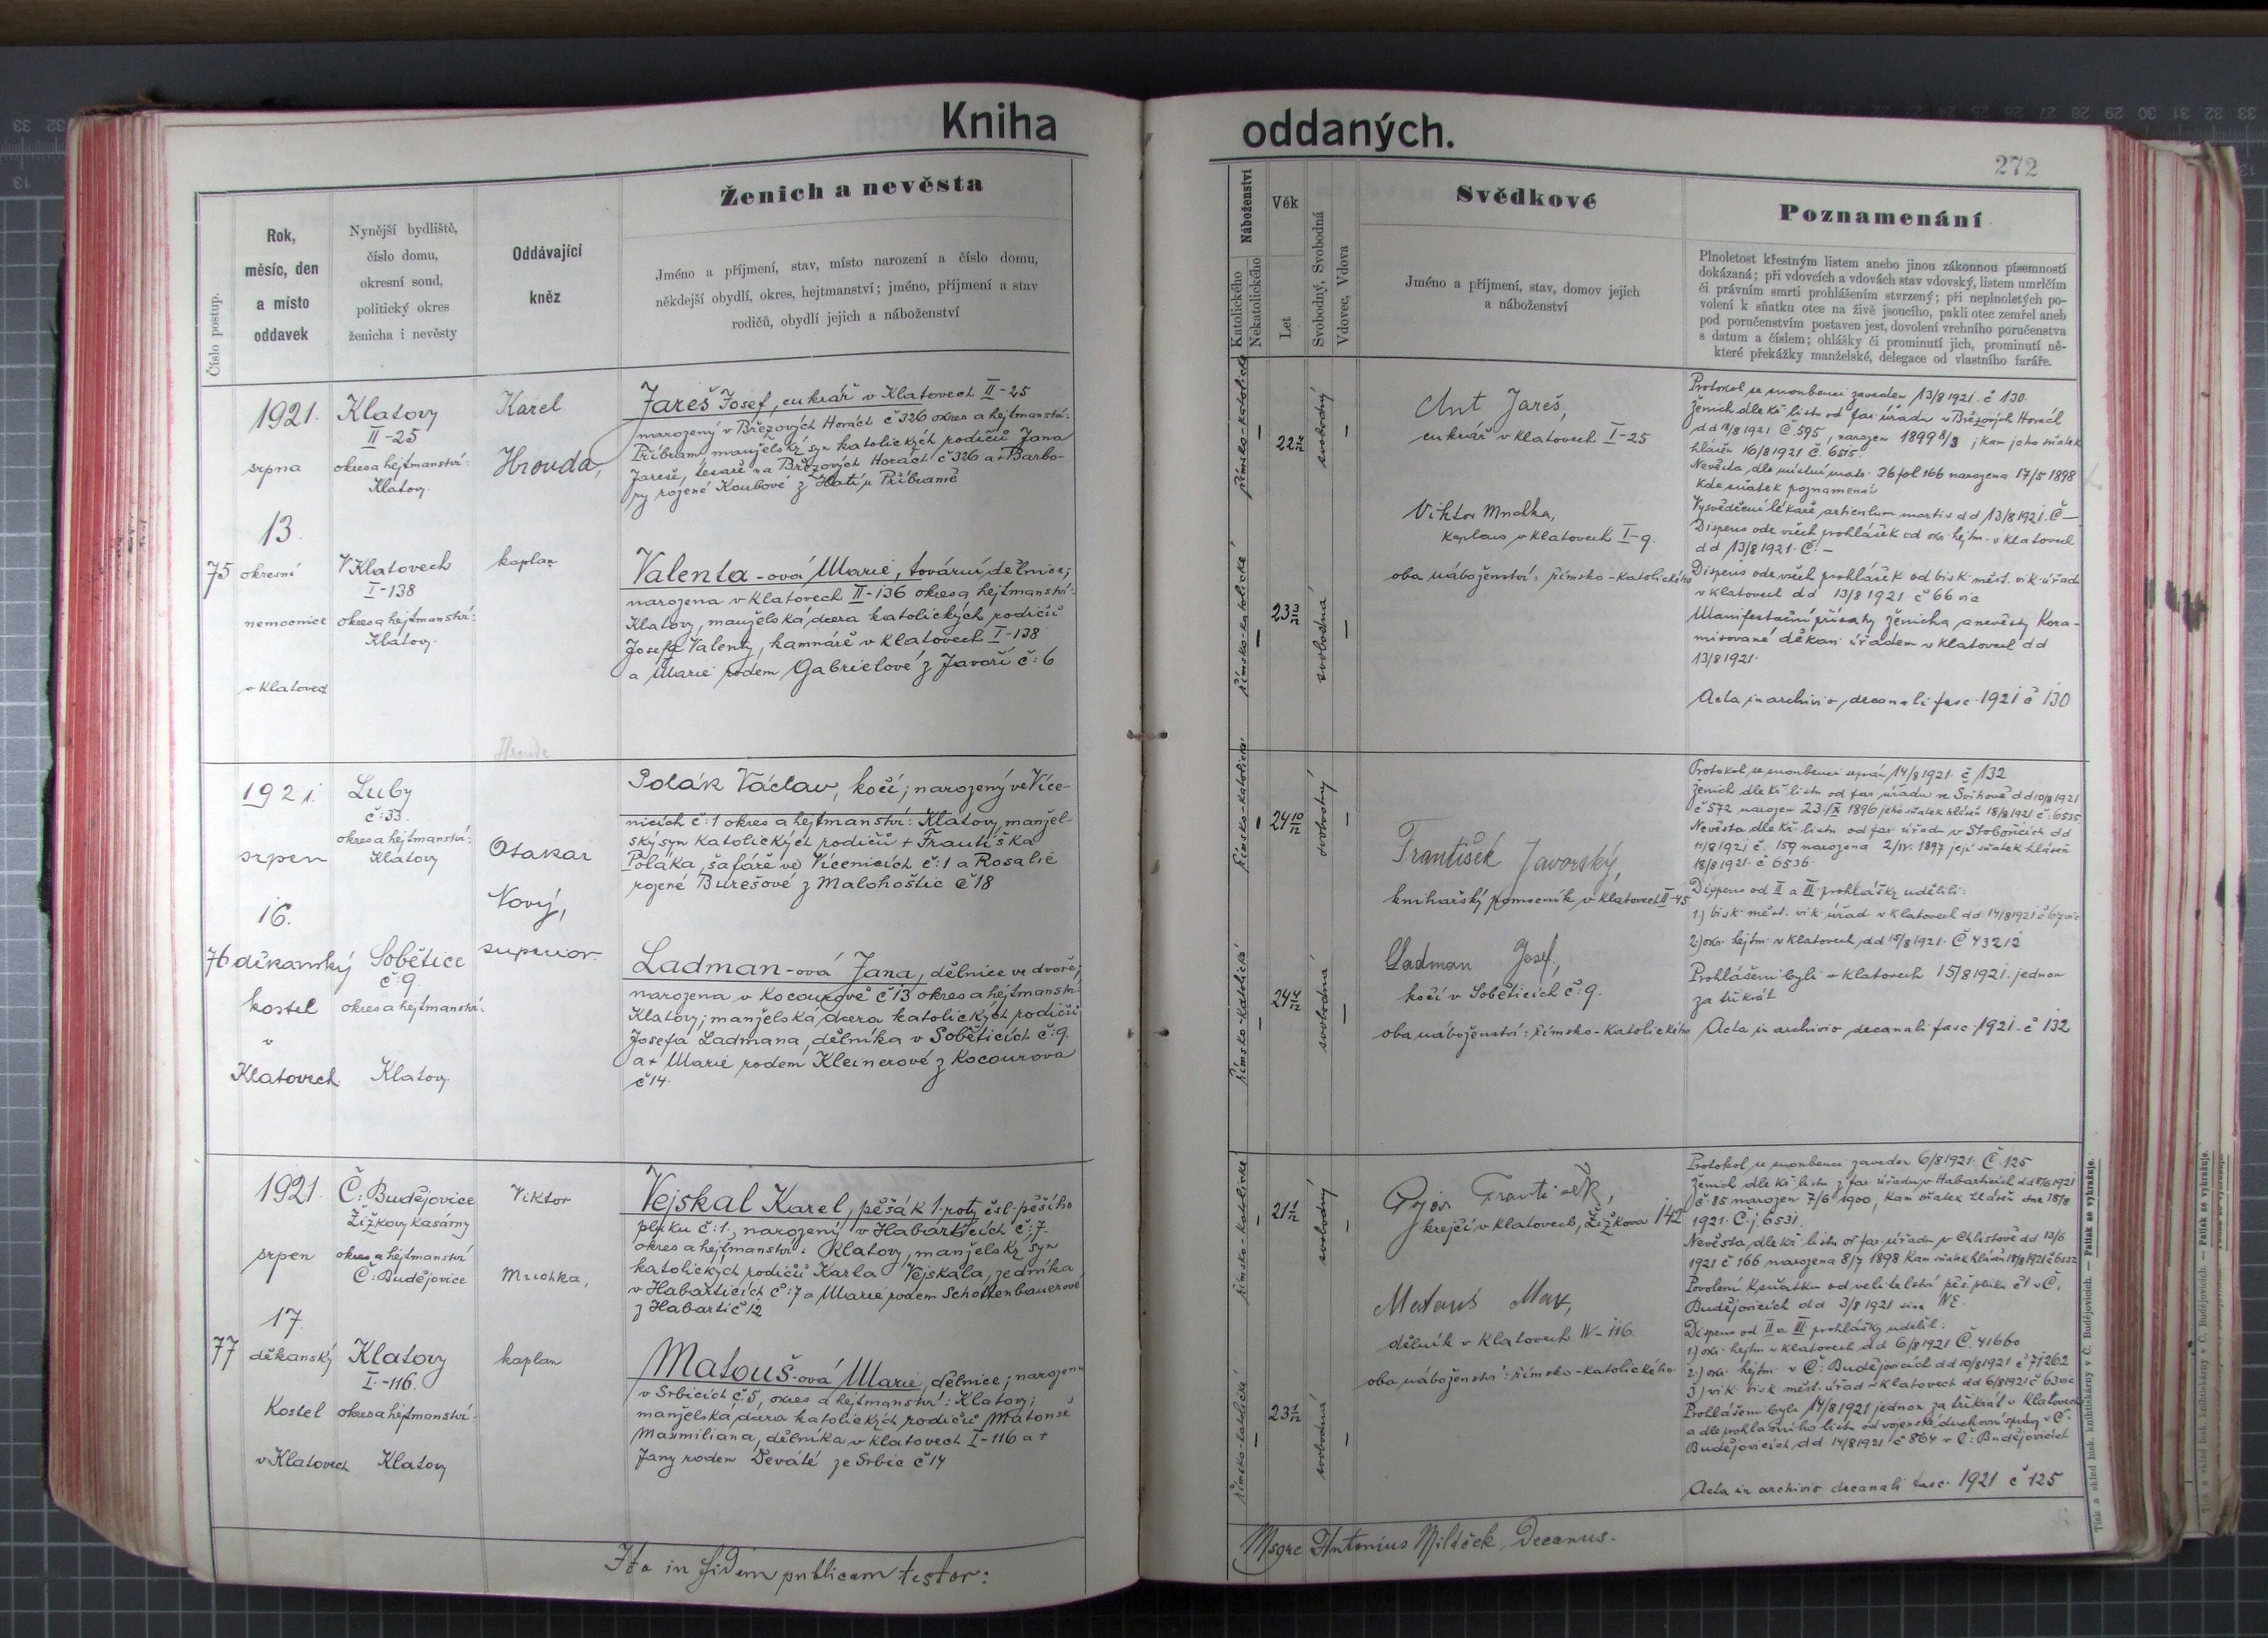 Kniha oddaných.
272
Číslo postup.
Rok,
měsíc, den
a místo
oddavek
Nynější bydliště,
číslo domu,
okresní soud,
politický okres
ženicha i nevěsty
Oddávající
kněz
Ženich a nevěsta
Jméno a příjmení, stav, místo narození a číslo domu,
někdejší obydlí, okres, hejtmanství; jméno, příjmení a stav
rodičů, obydlí jejich a náboženství
Náboženství
Katolického
Nekatolického
Věk
Let
Svobodný, Svobodná
Vdovec, Vdova
Svědkové
Jméno a příjmení, stav, domov jejich
a náboženství
Poznamenání
Plnoletost křestným listem anebo jinou zákonnou písemností
dokázaná; při vdovcích a vdovách stav vdovský, listem umrlčím
či právním smrti prohlášením stvrzený; při neplnoletých po-
volení k sňatku otce na živě jsoucího, pakli otec zemřel aneb
pod poručenstvím postaven jest, dovolení vrchního poručenstva
s datum a číslem; ohlášky či prominutí jich, prominutí ně-
které překážky manželské, delegace od vlastního faráře.
75
1921.
srpna
13.
okresní
nemocnice
v Klatovech
Klatovy
II-25
okres a hejtmanství:
Klatovy.
V Klatovech
I-138
okres a hejtmanství:
Klatovy.
Karel
Hrouda,
kaplan
Jareš Josef, cukrář v Klatovech II-25
narozený v Březových Horách č 326 okres a hejtmanství:
Příbram, manželský syn katolických rodičů Jana
Jareše, tesaře na Březových Horách č 326 a + Barbo-
ry rozené Koubové z Hatí u Příbramě
Valenta-ová Marie, tovární dělnice;
narozena v Klatovech II-136 okres a hejtmanství:
Klatovy, manželská dcera katolických rodičů
Josefa Valenty, kamnáře v Klatovech I-138
a Marie rodem Gabrielové z Javoří č: 6
římsko-katolické
22
svobodný
římsko-katolické
23
svobodná
Ant Jareš,
cukrář v Klatovech I-25
Viktor Mručka,
kaplan v Klatovech I-9.
oba náboženství: římsko-katolického
Protokol se snoubenci zaveden 13/8 1921. č 130.
Ženich dle kř. listu od far. úřadu v Březových Horách
č. 595, narozen 1899 8/3; kam jeho sňatek
hlášen 16/8 1921 č. 6515.
Nevěsta, dle místní matr. 26 fol 166 narozena 17/5 1898
kde sňatek poznamenán
Vysvědčení lékaře articulum mortis dd 13/8 1921. Č —
Dispens ode všech prohlášek od okr. hejtm. v Klatovech
dd 13/8 1921. Č. —
Dispens ode všech prohlášek od bisk. měst. vik. úřadu
v Klatovech dd 13/8 1921 č 66 vic
Manifestační přísahy ženicha a nevěsty Kora-
misované děkan. úřadem v Klatovech dd
13/8 1921.
Acta in archivio decanali fasc. 1921 č 130
76
1921.
srpen
16.
děkanský
kostel
v
Klatovech
Luby
č: 33.
okres a hejtmanství:
Klatovy
Sobětice
č: 9.
okres a hejtmanství:
Klatovy
Otakar
Nový,
superior.
Polák Václav, kočí; narozený ve Více-
nicích č: 1 okres a hejtmanství: Klatovy, manžel-
ský syn katolických rodičů + Františka
Poláka, šafáře ve Vícenicích č: 1 a Rosalie
rozené Burešové z Malohoštic č 18
Ladman-ová Jana, dělnice ve dvoře;
narozena v Kocourově č 13 okres a hejtmanství
Klatovy; manželská dcera katolických rodičů
Josefa Ladmana, dělníka v Soběticích č: 9.
a + Marie rodem Kleinerové z Kocourova
č 14.
římsko-katolické
24 10/12
svobodný
římsko-katolické
24 4/12
svobodná
František Javorský,
knihařský pomocník v Klatovech II-45
Ladman Josef,
kočí v Soběticích č: 9.
oba náboženství: římsko-katolického
Protokol se snoubenci sepsán 14/8 1921. č 132
Ženich dle kř. listu od far. úřadu ve Švihově dd 10/8 1921
č 572 narozen 23./IX 1896 jeho sňatek hlášen 18/8 1921 č: 6535
Nevěsta dle kř. listu od far. úřadu v Stobořicích dd
11/8 1921 č. 159 narozena 2/IV. 1897 její sňatek hlášen
18/8 1921. č 6536.
Dispens od II a III prohlášky udělili:
1.) bisk. měst. vik. úřad v Klatovech dd 14/8 1921 č 67 vic
2.) okr. hejtm. v Klatovech, dd 15/8 1921. Č 43212
Prohlášeni byli v Klatovech 15/8 1921. jednou
za třikrát
Acta in archivio decanali fasc. 1921. č 132
77
1921.
srpen
17.
děkanský
Kostel
v Klatovech
Č: Budějovice
Žižkovy kasárny
okres a hejtmanství
Č: Budějovice
Klatovy
I.-116.
okres a hejtmanství:
Klatovy
Viktor
Mručka,
kaplan
Vejskal Karel, pěšák 1. roty čsl. pěšího
pluku č: 1., narozený v Habarticích č: 7.
okres a hejtmanství: Klatovy, manželský syn
katolických rodičů Karla Vejskala, zedníka
v Habarticích č: 7 a Marie rodem Schottenbauerové
z Habartic č 12
Matouš-ová Marie, dělnice; narozena
v Srbicích č 5, okres a hejtmanství: Klatovy;
manželská dcera katolických rodičů Matouše
Maxmiliána, dělníka v Klatovech I-116 a +
Jany rodem Deváté ze Srbic č 14
římsko-katolické
21
svobodný
římsko-katolické
23 1/12
svobodná
František,
krejčí v Klatovech, Žižkova 142
Matouš Max,
dělník v Klatovech IV-116
oba náboženství: římsko-katolického.
Protokol se snoubenci zaveden 6/8 1921. Č. 125
Ženich dle kř. listu z far. úřadu v Habarticích
č 85 narozen 7/6 1900, kam sňatek hlášen dne 18/8
1921. Č. j. 6531.
Nevěsta, dle kř. listu od far. úřadu v Chlistově dd 12/6
1921 č 166 narozena 8/7 1898 kam sňatek hlášen 18/8 1921 č 6532
Povolení k sňatku od velitelství pěš. pluku č 1 v Č.
Budějovicích dd 3/8 1921 sine NE.
Dispens od II a III prohlášky udělil:
1) okr. hejtm v Klatovech dd 6/8 1921 Č. 41660
2.) okr. hejtm. v Č: Budějovicích dd 10/8 1921 č 71262
3) vik. bisk. měst. úřad v Klatovech dd 6/8 1921 č 63 vic
Prohlášeni byli 14/8 1921 jednou za třikrát v Klatovech
a dle prohlašovního listu od vojenské duchovní správy v Č.
Budějovicích dd 14/8 1921 č 864 v Č: Budějovicích
Acta in archivio decanali fasc. 1921 č 125
Ita in fidem publicam testor:
Msgre Antonius Decanus.
Tisk a sklad bisk. knihtiskárny v Č. Budějovicích. — Patisk se vyhražuje.